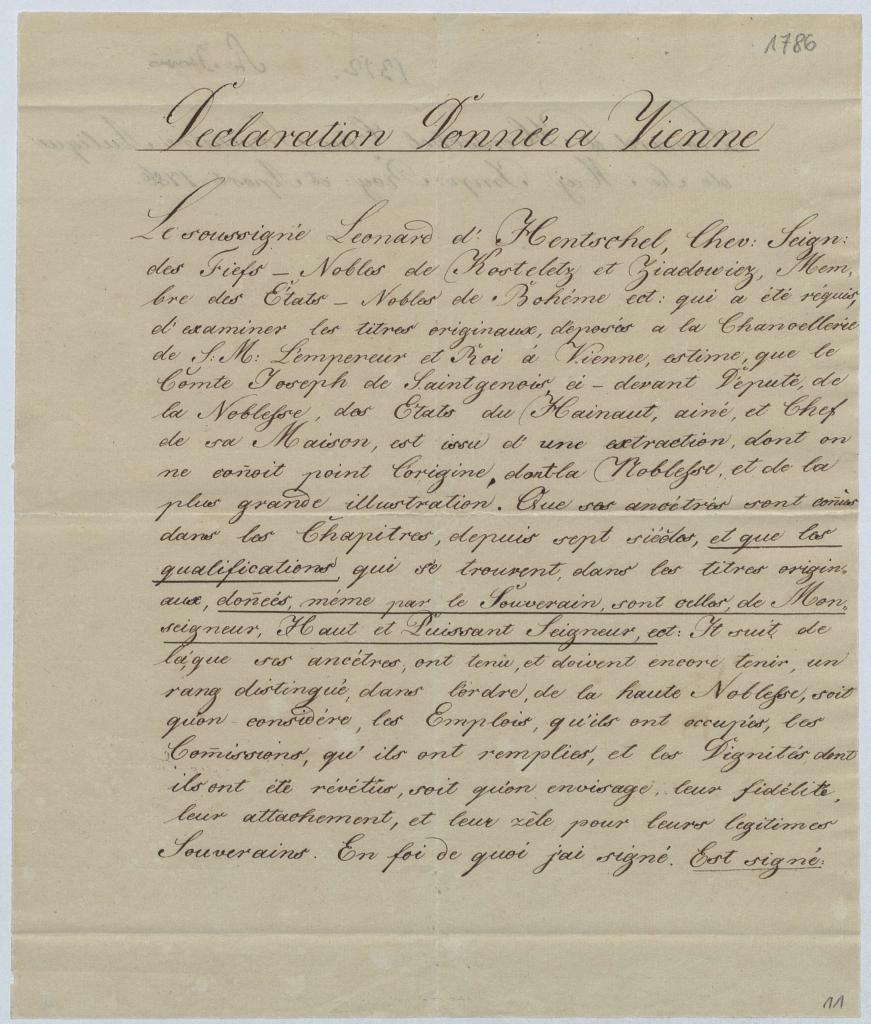 1786
Declaration Donnée a Vienne
Le soussigné Leonard d' Hentschel, Chev: Seign:
des Fiefs – Nobles de Kosteletz et Ziadowiez, Mem,
bre des États – Nobles de Bohéme ect: qui a été réquis,
d'examiner les titres originaux, déposés a la Chancellerie
de S: M: L'empereur et Roi á Vienne, estime, que le
Comte Joseph de Saintgenois, ci – devant Députe, de
la Noblesse, des Etats du Hainaut, ainé, et Chef
de sa Maison, est issu d'une extraction, dont on
ne coñoit point l'origine, dont la Noblesse, et de la
plus grande illustration. Que ses ancétrés sont coñus
dans les Chapitres, depuis sept siécles, et que les
qualifications, qui se trouvent, dans les titres origin,,
aux, doñeés, méme par le Souverain, sont celles, de Mon,,
seigneur, Haut et Puissant Seigneur, ect: It suit de
lá, que ses ancétres, ont tenu, et doivent encore tenir, un
rang distingué, dans l'ordre, de la haute Noblesse, soit
qu'on considére, les Emplois, qu'ils ont occupés, les
Com̃issions, qu'ils ont remplies, et les Dignités, dont
ils ont été révétus, soit qu'on envisage, leur fidélité,
leur attachement, et leur zéle pour leurs legitimes
Souverains. En foi de quoi j'ai signé. Est signé:
11